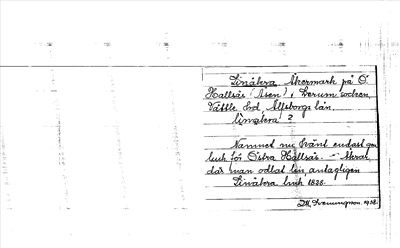 Linåkra Åkermark på Ö.
Hallsås (Åsen) i Lerum socken,
Vättle hd Älfsborgs län.
linakra 2
Namnet nu känt endast gm
luck för Östra Hallsås. - Åkrar,
där man odlat lin, antagligen
Linåkra luck 1828.
1928.